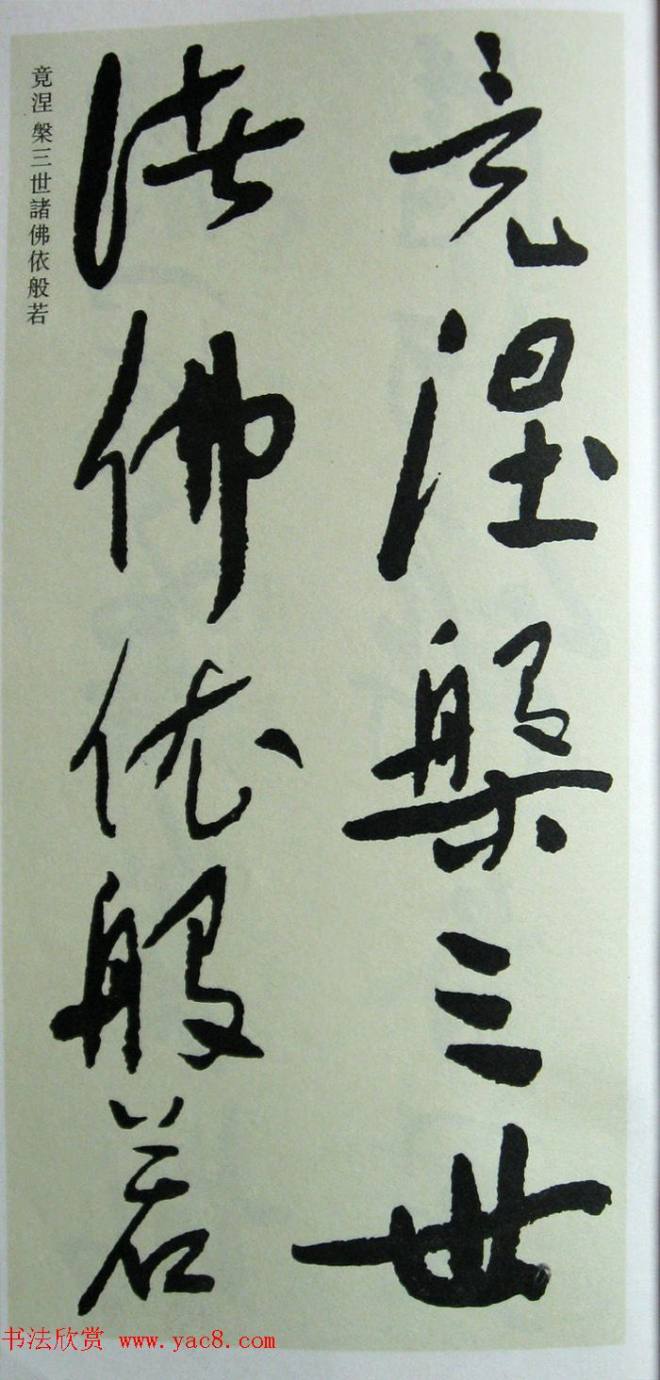 竟涅槃三世
諸佛依般若
竟涅槃三世諸佛依般若
书法欣赏 www.yac8.com